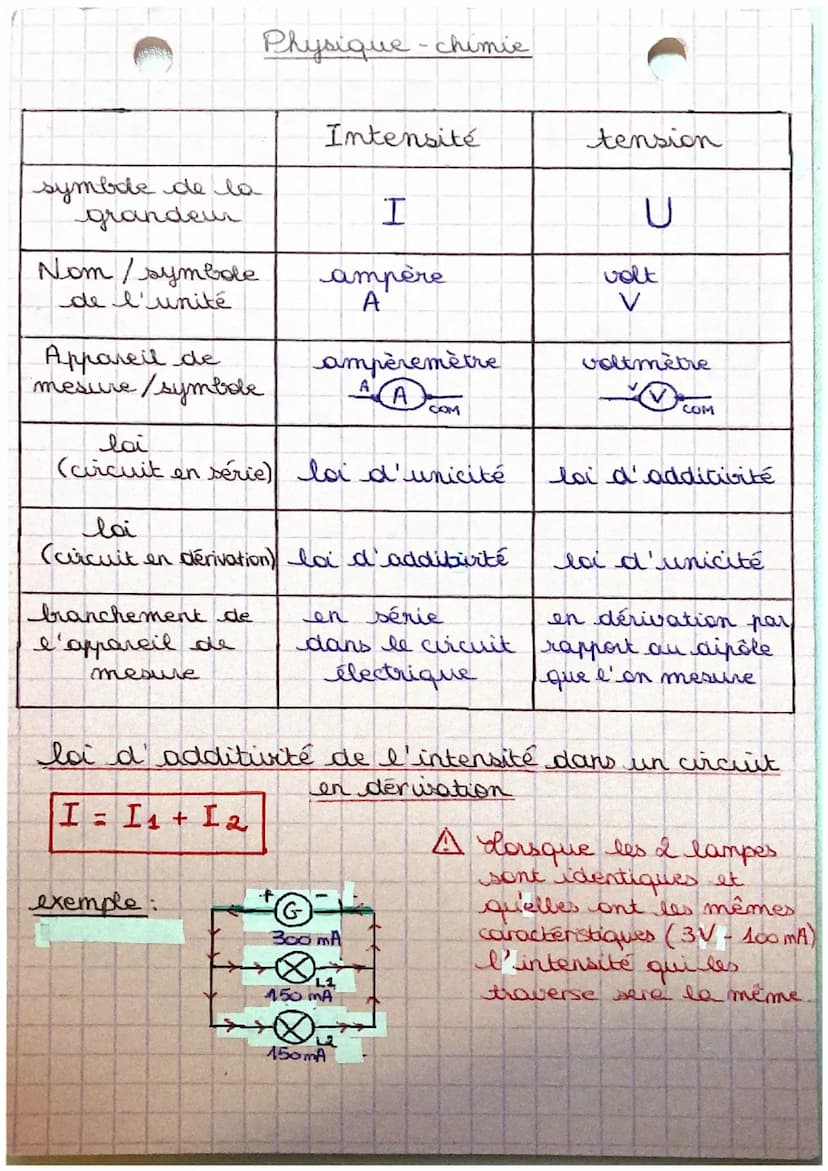 Physique-chimie
Intensité tension
symbole de la
grandeur
I U
Nom / symbole
de l'unité
ampère
A
volt
V
Appareil de
mesure / symbole
ampèremètre
A A COM
voltmètre
V V COM
loi
(circuit en série) loi d'unicité loi d'additivité
loi
(circuit en dérivation) loi d'additivité loi d'unicité
branchement de
l'appareil de
mesure
en série
dans le circuit
électrique
en dérivation par
rapport au dipôle
que l'on mesure
loi d'additivité de l'intensité dans un circuit
en dérivation
I = I1 + I2
⚠ Lorsque les 2 lampes
sont identiques et
qu'elles ont les mêmes
caractéristiques (3V - 100 mA)
l'intensité qui les
traverse sera la même.
exemple :
+ G -
300 mA
L1
150 mA
L2
150mA